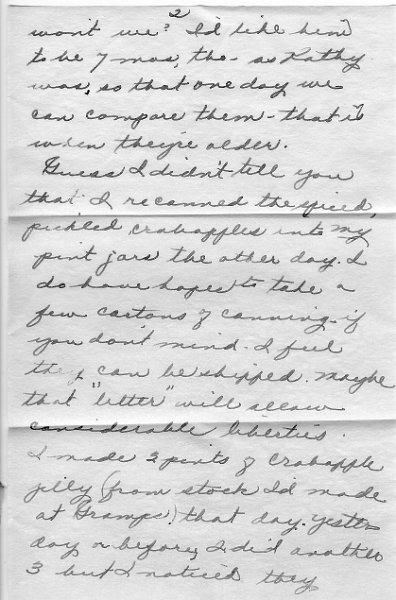 2
won't we? I'd like him
to be 7 mos, tho - as Kathy
was, so that one day we
can compare them - that is
when they're older.
Guess I didn't tell you
that I recanned the spiced,
pickled crabapples into my
pint jars the other day. I
do have hopes to take a
few cartons of canning - if
you don't mind. I feel
they can be shipped. Maybe
that "letter" will allow
considerable liberties.
I made 2 pints of crabapple
jelly (from stock I'd made
at Gramps) that day. Yester-
day or before, I did another
3 but I noticed they